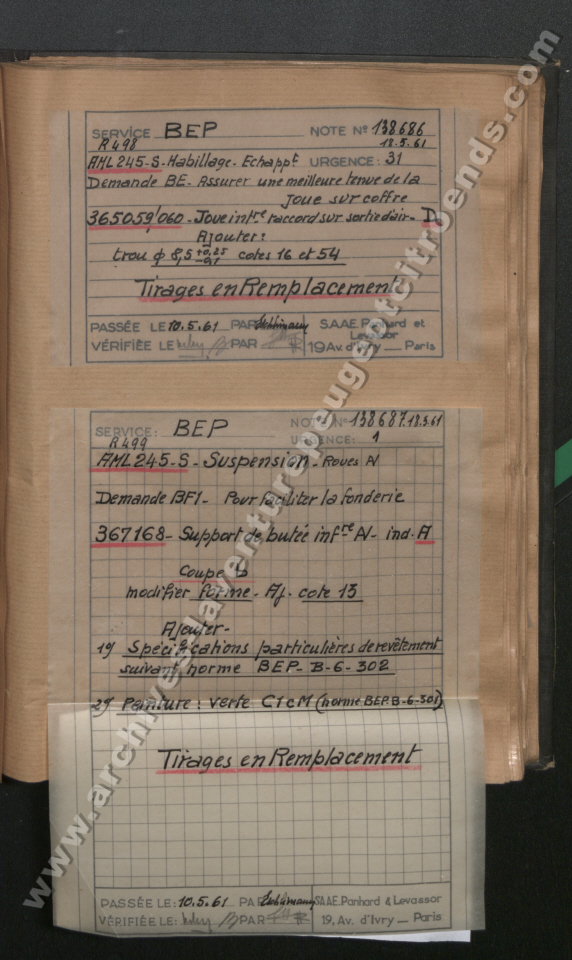 SERVICE BEP NOTE Nº 138686
R498 18.5.61
AML 245-S-Habillage-Echappt URGENCE: 31
Demande BE- Assurer une meilleure tenue de la
Joue sur coffre
365059/060-Joue intre raccord sur sortie d'air- D
Ajouter:
trou φ 8,5 +0,25 -0,1 cotes 16 et 54
Tirages en Remplacement
PASSÉE LE 10.5.61 PAR S.A.A.E. Panhard et Levassor
VÉRIFIÉE LE PAR 19 Av. d'Ivry — Paris
SERVICE: BEP NOTE Nº 138687.18.5.61
R499 URGENCE: 1
AML 245-S-Suspension-Roues AV
Demande BF1- Pour faciliter la fonderie
367168- Support de butée infre AV- ind. A
Coupe b
modifier forme- Aj. cote 13
Ajouter-
1º/ Spécifications particulières de revêtement
suivant norme BEP-B-6-302
2º/ Peinture: verte C1cM (norme BEP.B-6-301)
Tirages en Remplacement
PASSÉE LE: 10.5.61 PAR S.A.A.E. Panhard & Levassor
VÉRIFIÉE LE: PAR 19, Av. d'Ivry — Paris
www.archiveslaventurepeugeotcitroends.com